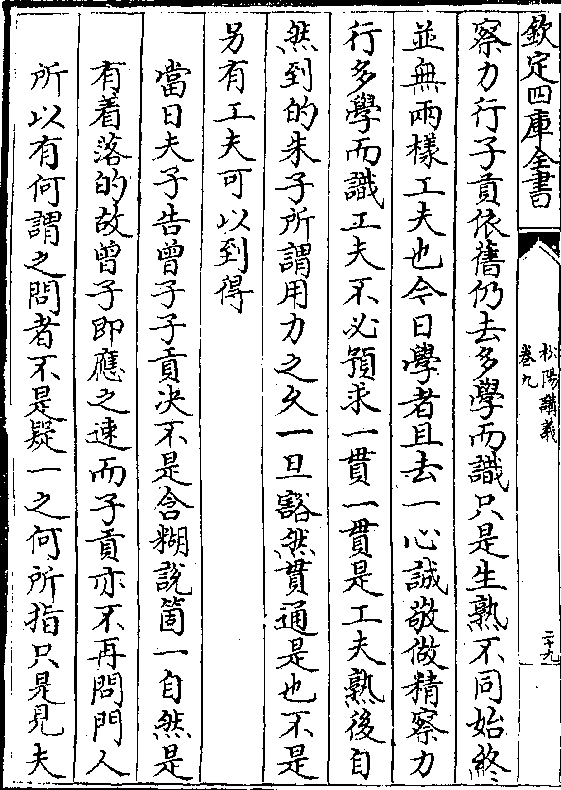 欽定四庫全書
松陽講義
卷九
二十九
察力行子貢依舊仍去多學而識只是生熟不同始終
並無兩樣工夫也今日學者且去一心誠敬做精察力
行多學而識工夫不必預求一貫一貫是工夫熟後自
然到的朱子所謂用力之久一旦豁然貫通是也不是
另有工夫可以到得
當日夫子告曾子子貢决不是含糊說箇一自然是
有着落的故曾子即應之速而子貢亦不再問門人
所以有何謂之問者不是疑一之何所指只是見夫